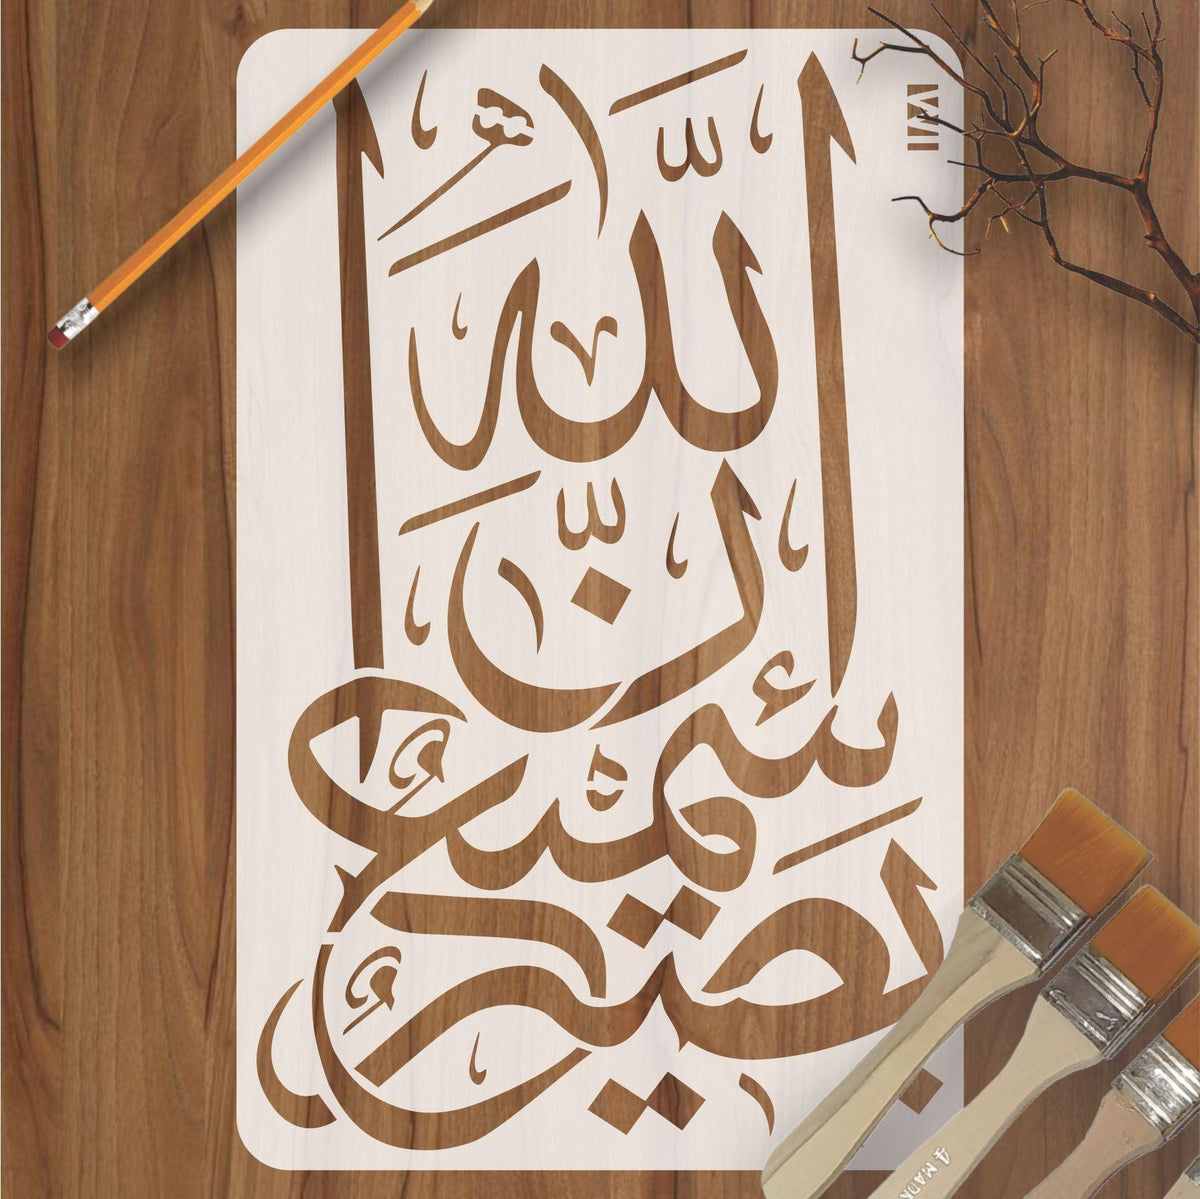 إِنَّ اللَّهَ سَمِيعٌ بَصِيرٌ
4